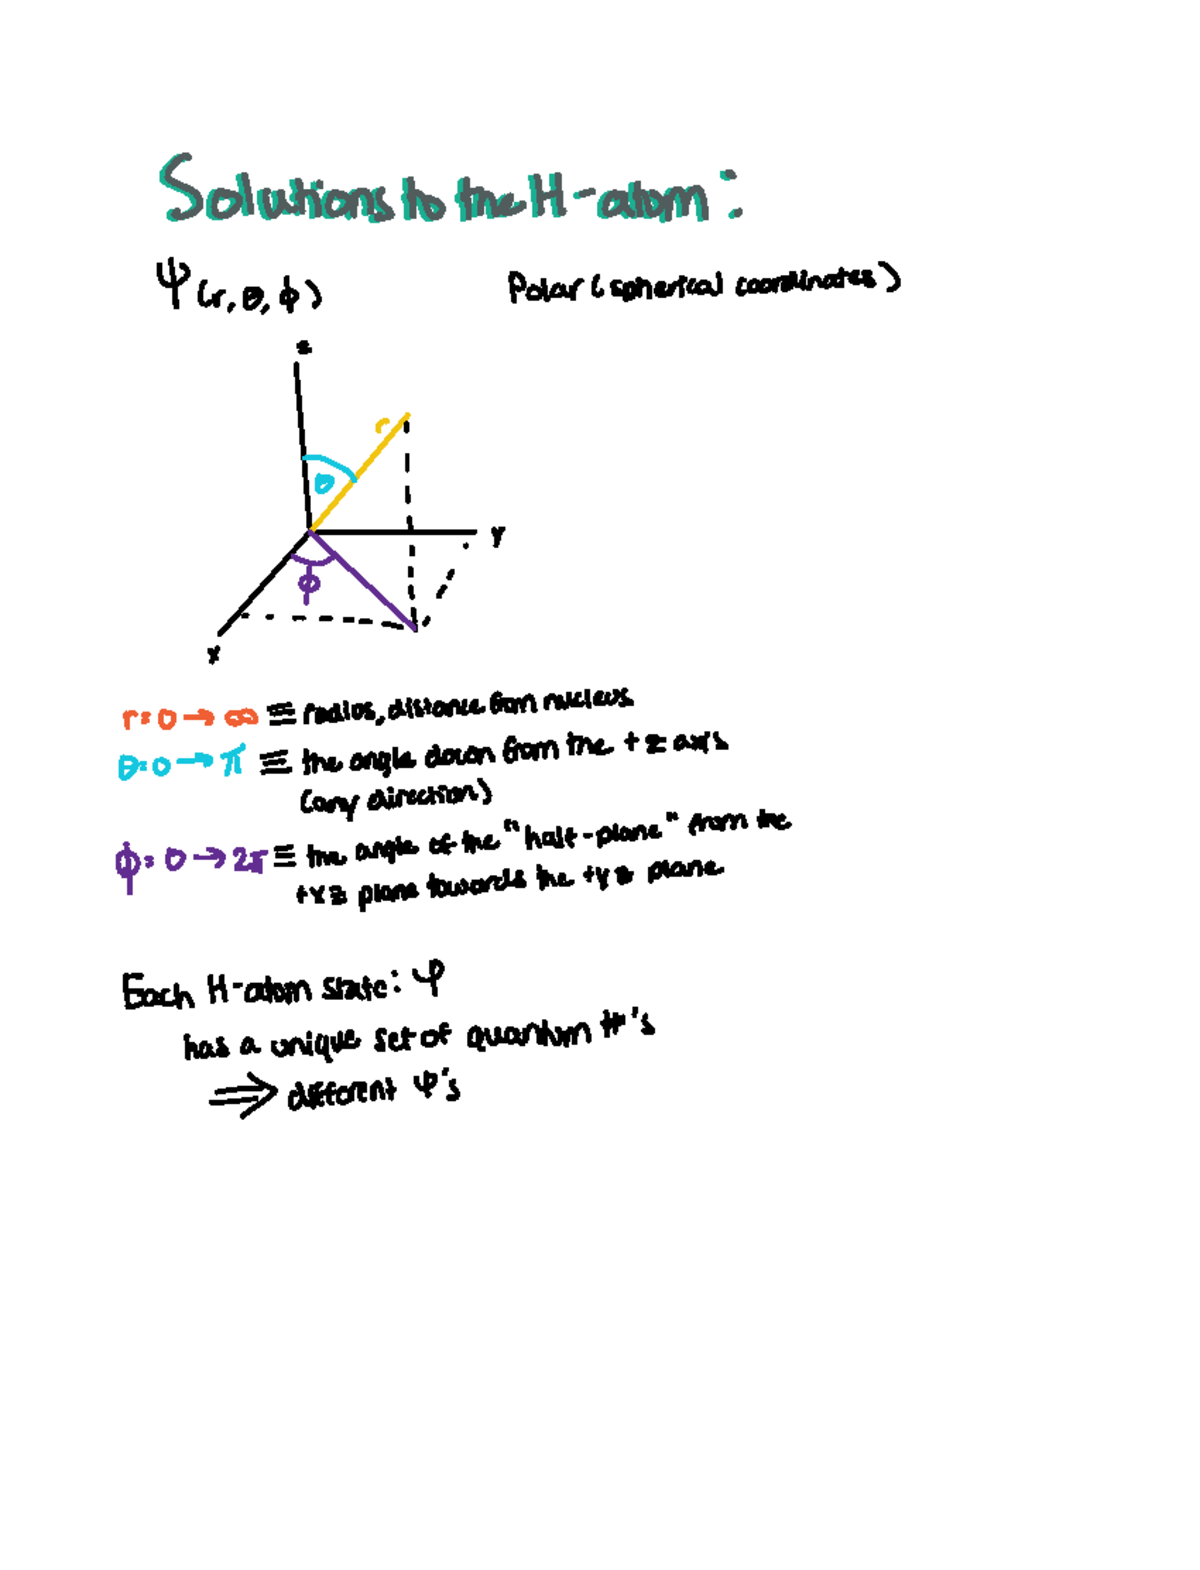 Solutions to the H-atom:
Ψ(r, θ, ϕ)
Polar (spherical coordinates)
z
r
θ
y
ϕ
x
r=0→∞ ≡ radius, distance from nucleus
θ=0→π ≡ the angle down from the +z axis
(any direction)
ϕ=0→2π ≡ the angle of the "half-plane" from the
+xz plane towards the +yz plane
Each H-atom state: Ψ
has a unique set of quantum #'s
⟹ different Ψ's